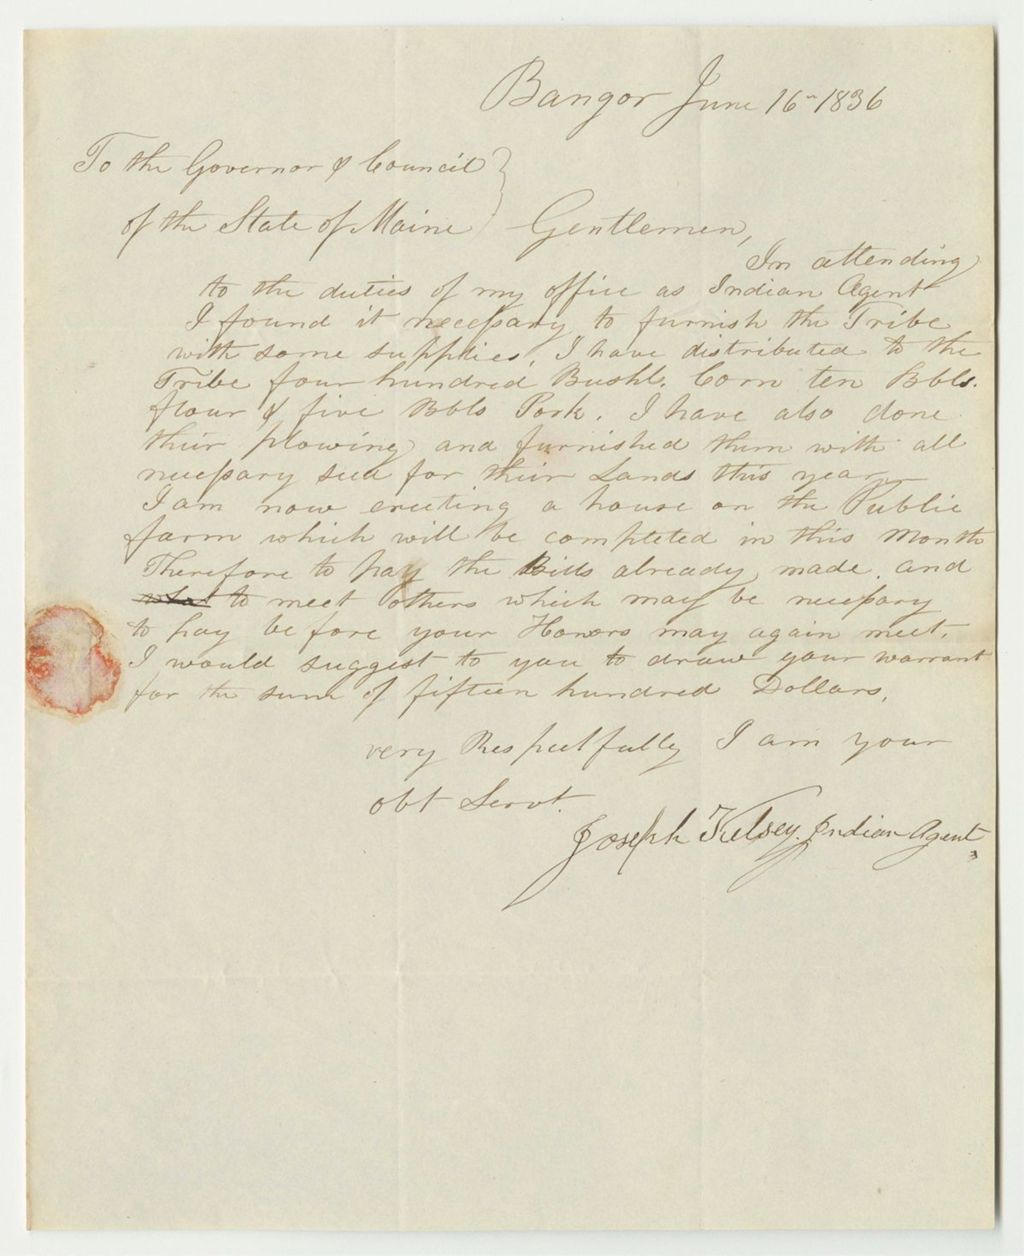 Bangor June 16th 1836
To the Governor & Council
of the State of Maine Gentlemen,
In attending
to the duties of my office as Indian Agent
I found it necessary to furnish the Tribe
with some supplies, I have distributed to the
Tribe four hundred Bushl. Corn ten Bbls.
flour & five Bbls Pork. I have also done
their plowing and furnished them with all
necessary seed for their Lands this year
I am now erecting a house on the Public
farm which will be completed in this Month
Therefore to pay the Bills already made, and
to meet others which may be necessary
to pay before your Honors may again meet.
I would suggest to you to draw your warrant
for the sum of fifteen hundred Dollars,
very Respectfully I am your
obt Servt.
Joseph Kelsey. Indian Agent